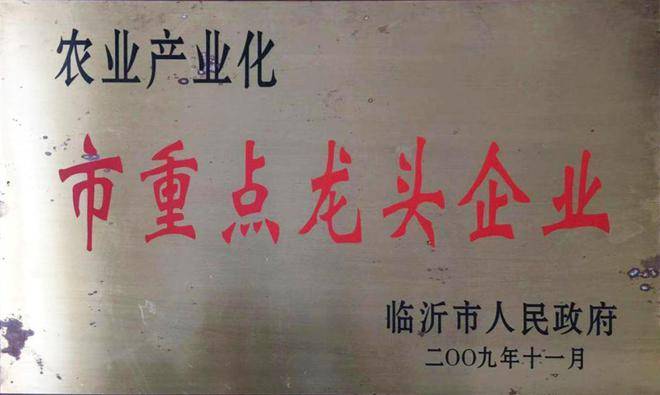 农业产业化
市重点龙头企业
临沂市人民政府
二〇〇九年十一月